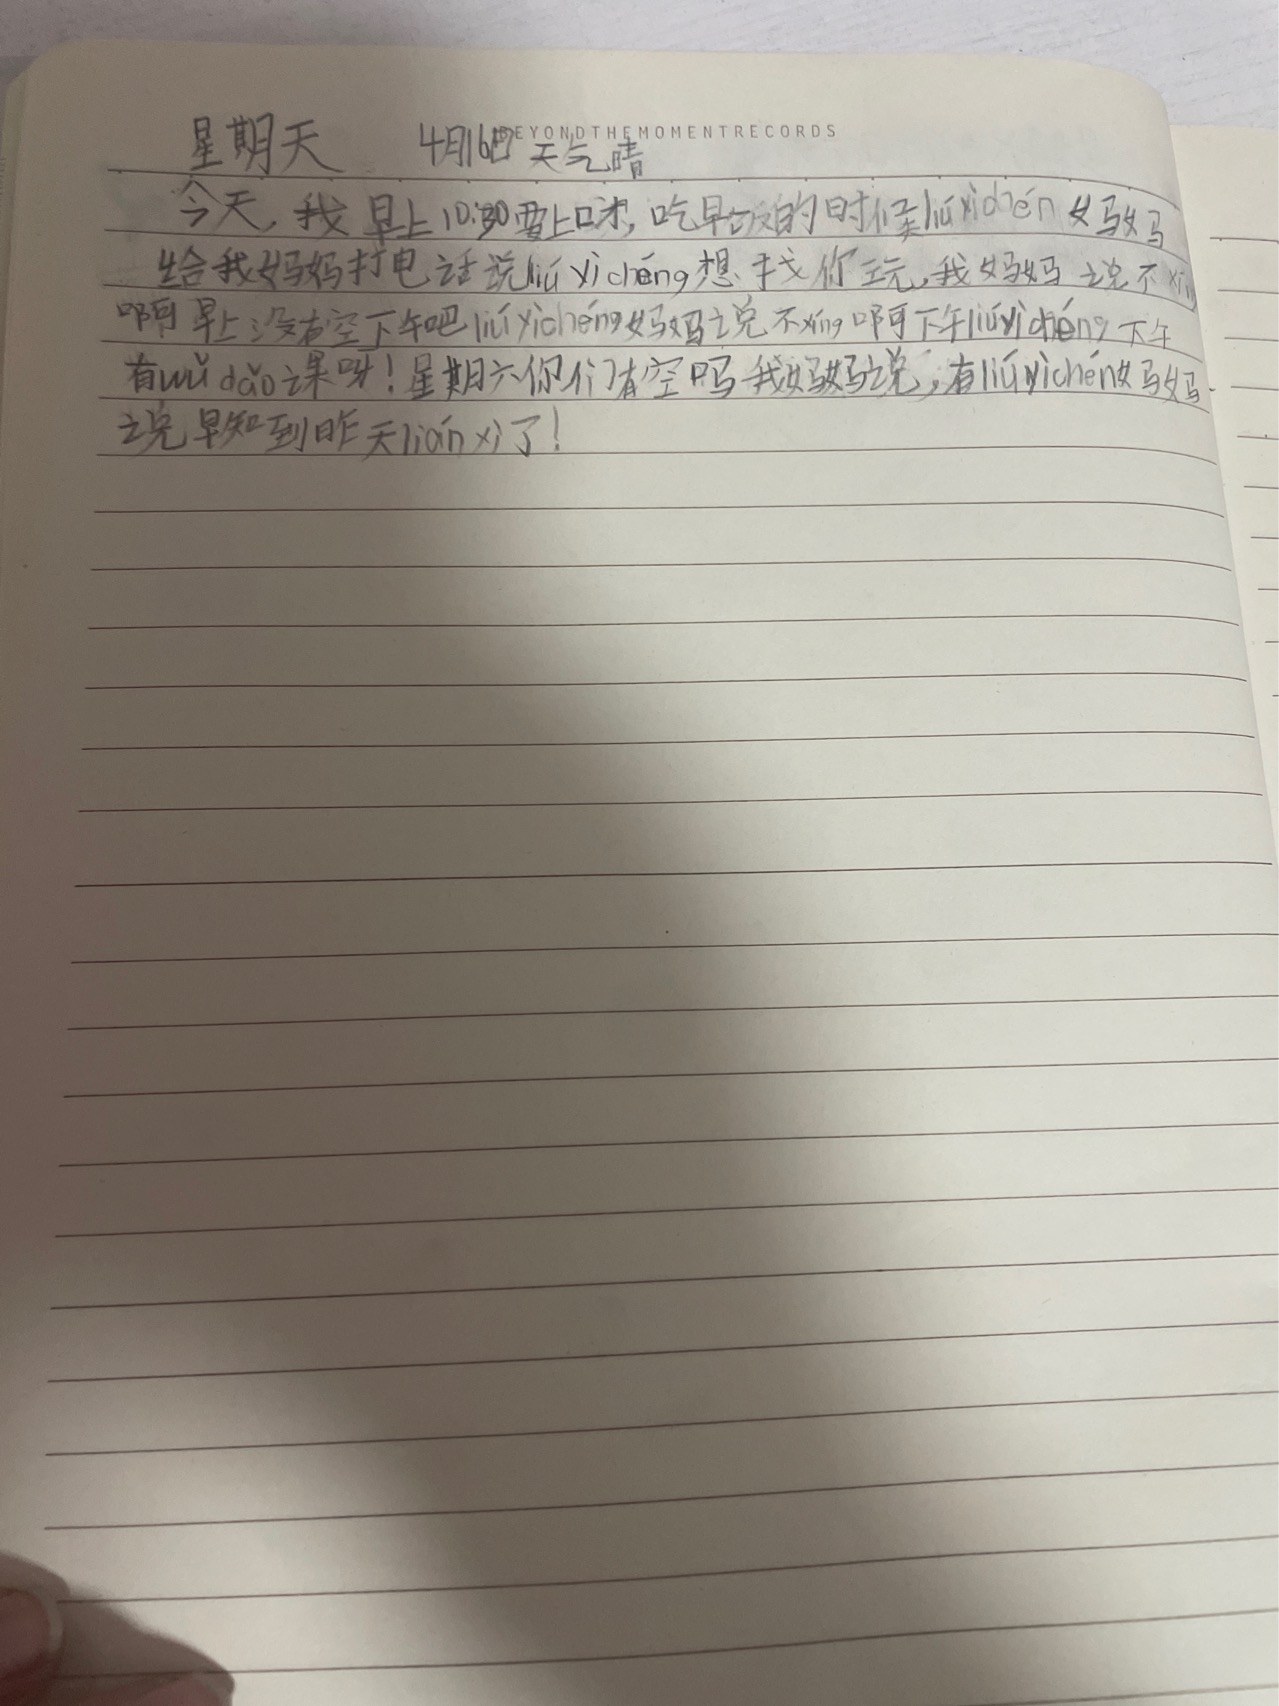 BEYONDTHEMOMENTRECORDS
星期天 4月16日 天气晴
今天,我早上10:30要上口才,吃早饭的时候liúyichén妈妈
给我妈妈打电话说liúyichéng想找你玩,我妈妈说不xíng
啊早上没有空下午吧liúyichéng妈妈说不xíng啊下午liúyichéng下午
有wǔdǎo课呀!星期六你们有空吗我妈妈说,有liúyichén妈妈
说早知到昨天liánxi了!